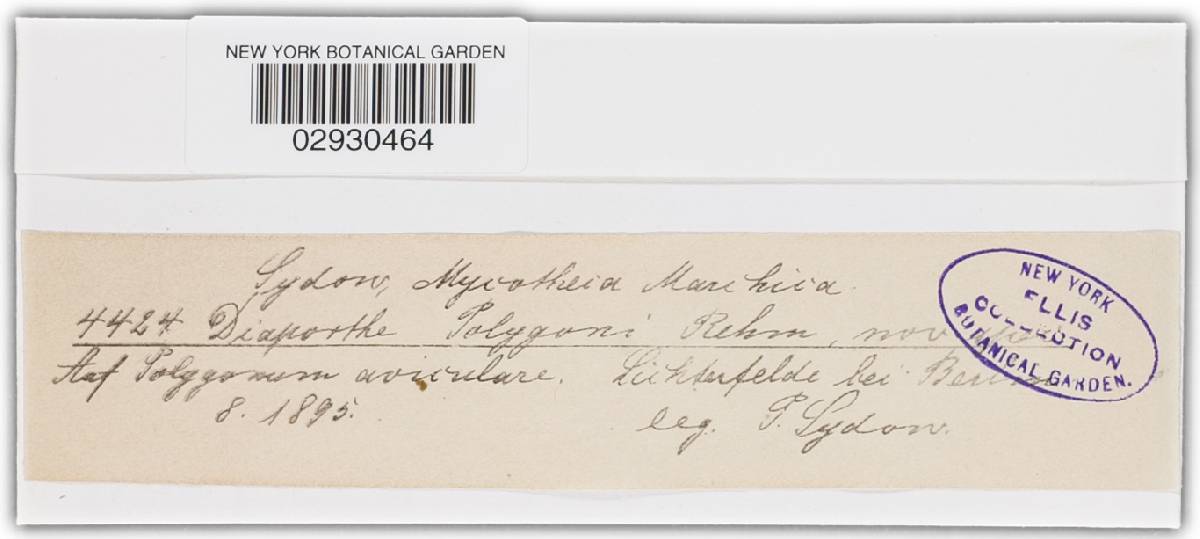 NEW YORK BOTANICAL GARDEN
02930464
Sydow, Mycotheca Marchica.
4424 Diaporthe Polygoni Rehm, nov.
Auf Polygonum aviculare. Lichterfelde bei Berlin
8. 1895.
leg. P. Sydow.
NEW YORK
ELLIS
COLLECTION
BOTANICAL GARDEN.